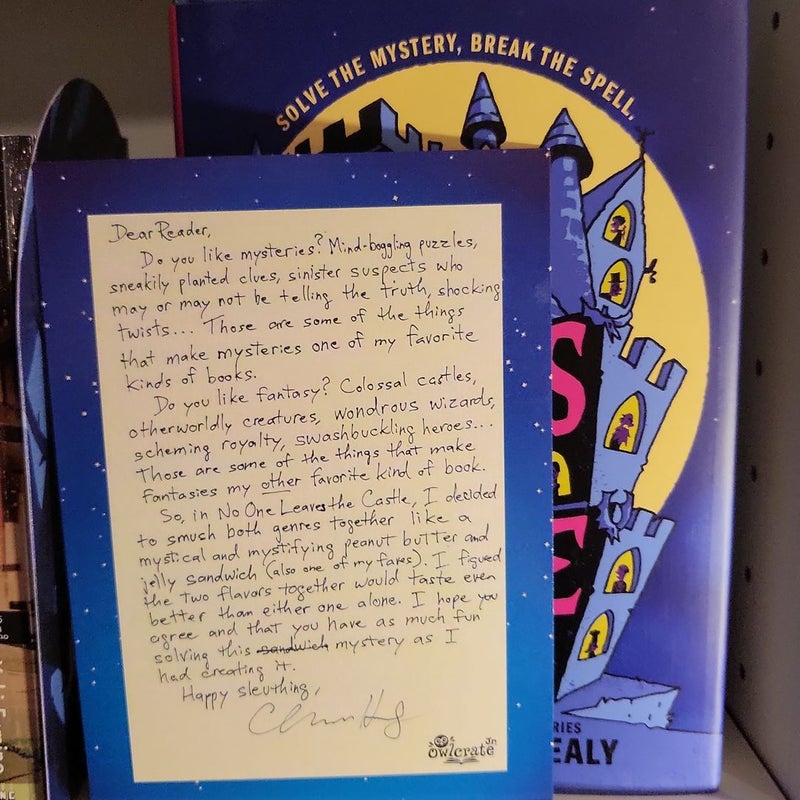 SOLVE THE MYSTERY, BREAK THE SPELL.
Dear Reader,
Do you like mysteries? Mind-boggling puzzles,
sneakily planted clues, sinister suspects who
may or may not be telling the truth, shocking
twists... Those are some of the things
that make mysteries one of my favorite
kinds of books.
Do you like fantasy? Colossal castles,
otherworldly creatures, wondrous wizards,
scheming royalty, swashbuckling heroes...
Those are some of the things that make
fantasies my other favorite kind of book.
So, in No One Leaves the Castle, I decided
to smush both genres together like a
mystical and mystifying peanut butter and
jelly sandwich (also one of my faves). I figured
the two flavors together would taste even
better than either one alone. I hope you
agree and that you have as much fun
solving this sandwich mystery as I
had creating it.
Happy sleuthing,
owlcrate Jr
S
E
RIES
EALY